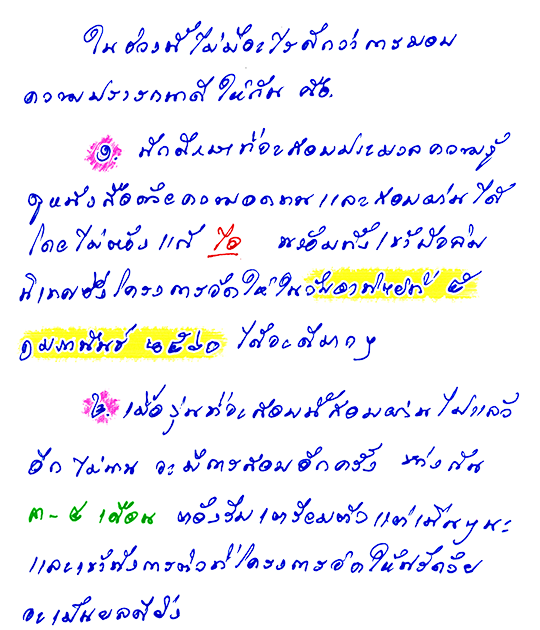 ในช่วงนี้ ไม่มีอะไรดีกว่าการมอบ
ความปรารถนาดี ให้กัน คือ.
๑. นักศึกษาที่จะสอบประมวลความรู้
ดูหนังสือด้วยความอดทน และสอบผ่านได้
โดยไม่ต้องแก้ ไอ พร้อมทั้งเข้าฟัง
นิเทศซึ่งโครงการจัดให้ในวันอาทิตย์ที่ ๕
กุมภาพันธ์ ๒๕๔๐ ได้จะดีมากๆ
๒. เมื่อรุ่นที่จะสอบนี้สอบผ่านไปแล้ว
อีกไม่นาน จะมีการสอบอีกครั้ง ห่างกัน
๓-๔ เดือน ต้องรีบเตรียมตัวแต่เนิ่นๆนะ
และเข้าฟังการติวที่โครงการจัดให้ด้วย
จะเป็นผลดียิ่ง